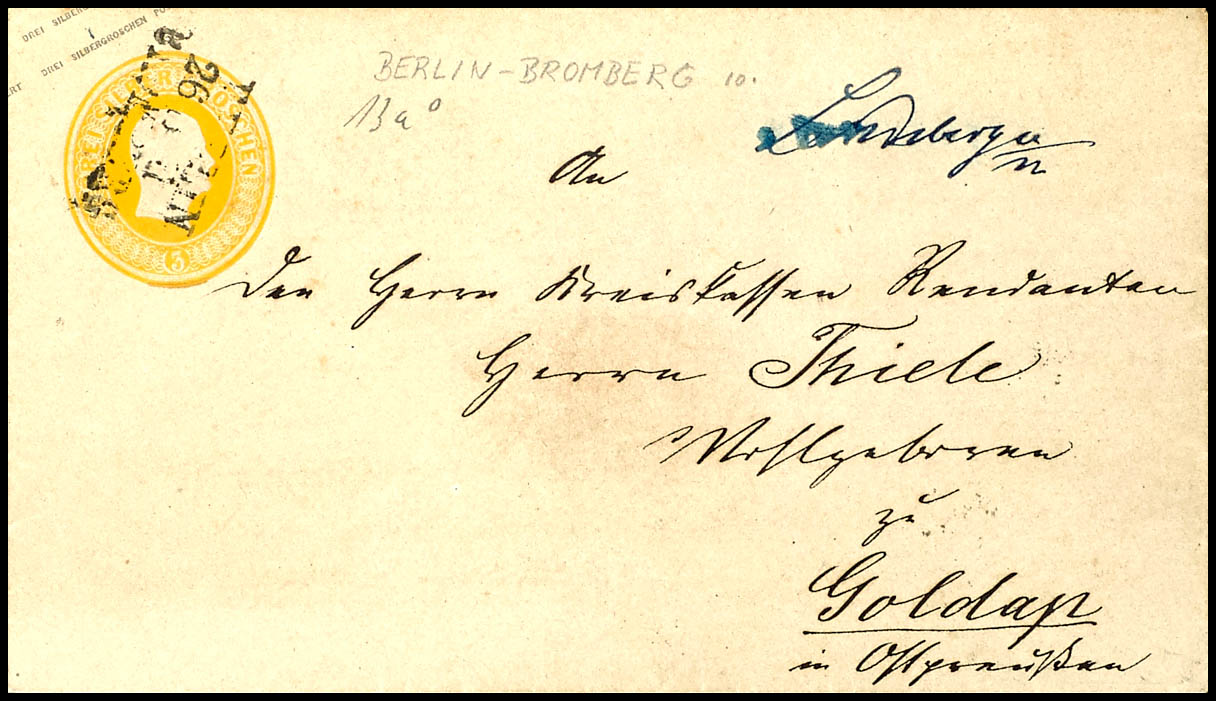 DREI SILBERGROSCHEN
DREI SILBERGROSCHEN PO
ERT
DREI SILBER GROSCHEN
3
BERLIN - BROMBERG 10.
13 a
Landsberg a/W
An
den Herrn Kreiskassen Rendanten
Herrn Thiele
Wohlgeboren
zu
Goldap
in Ostpreußen